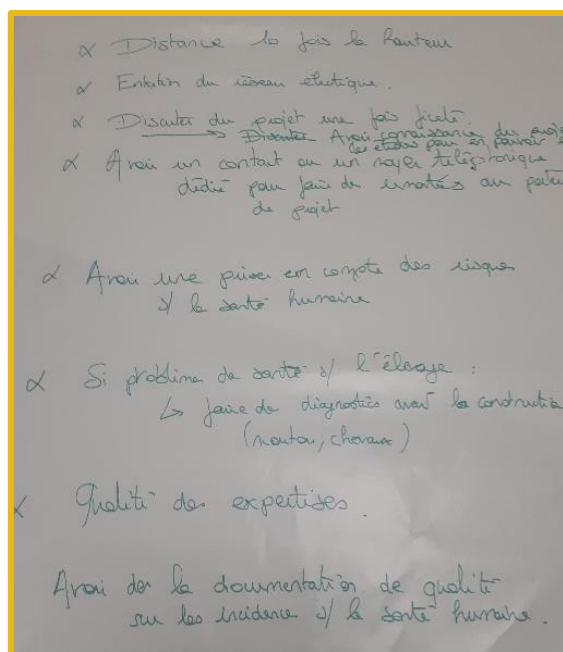 α Distance 10 fois la hauteur
α du réseau électrique.
α Discuter du projet une fois ficelé.
→ Discuter Avoir connaissance du projet
les études pour en pouvoir
α Avoir un contact ou un noyer téléphonique
dédié pour faire de remontés au porteur
de projet
α Avoir une prise en compte des risques
s/ la santé humaine
α Si problème de santé s/ l'élevage :
↳ faire de diagnostics avant la construction
(mouton, chevaux)
α Qualité des expertises.
Avoir de la documentation de qualité
sur les incidence s/ la santé humaine.